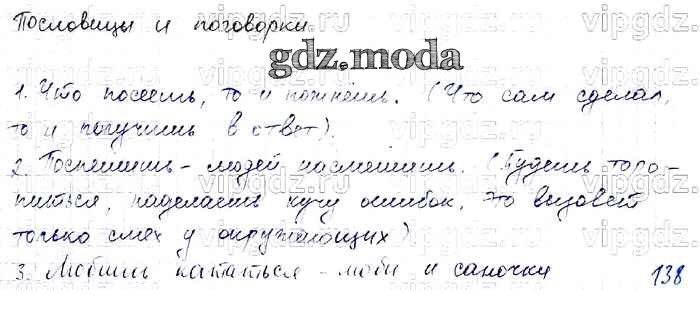 Пословицы и поговорки.
gdz.moda
1. Что посеешь, то и пожнёшь. (Что сам сделал,
то и получишь в ответ).
2. Поспешишь - людей насмешишь. (Будешь торо-
питься, наделаешь кучу ошибок, это вызовет
только смех у окружающих)
3. Любишь кататься - люби и саночки
138
vipgdz.ru